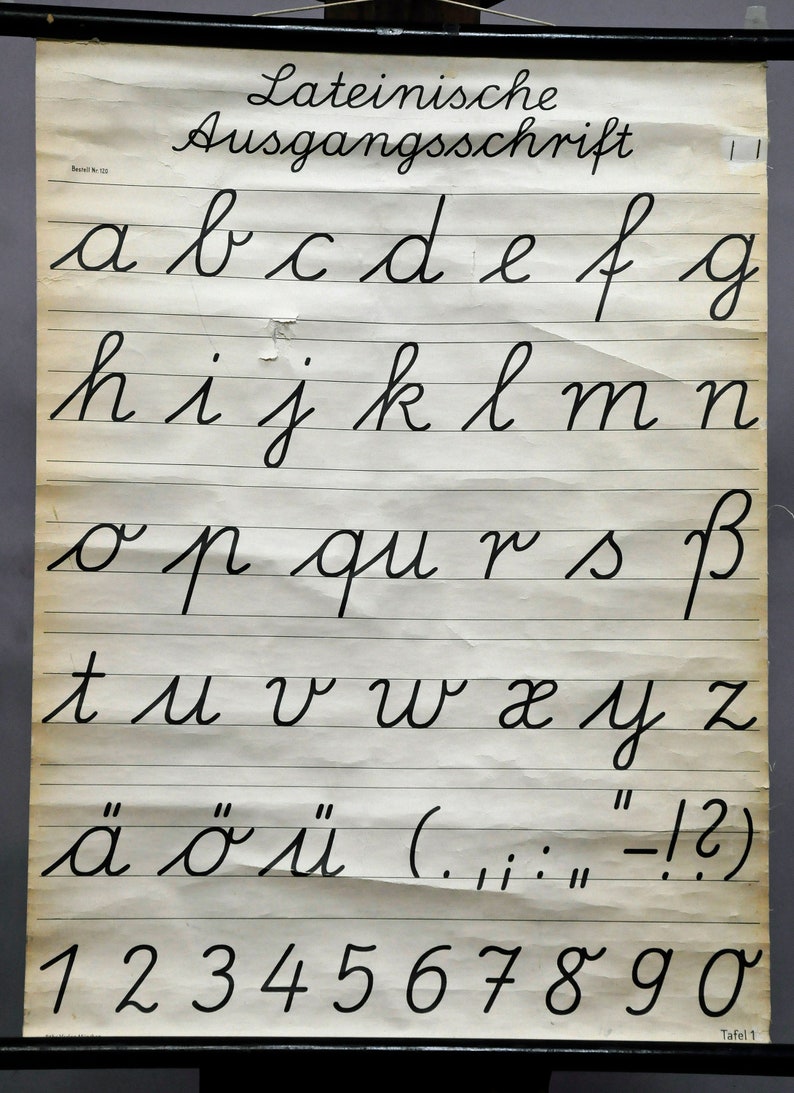 Lateinische
Ausgangsschrift
Bestell Nr. 120
a b c d e f g
h i j k l m n
o p qu r s ß
t u v w x y z
ä ö ü ( . , ; : „ " – ! ? )
1 2 3 4 5 6 7 8 9 0
Tafel 1